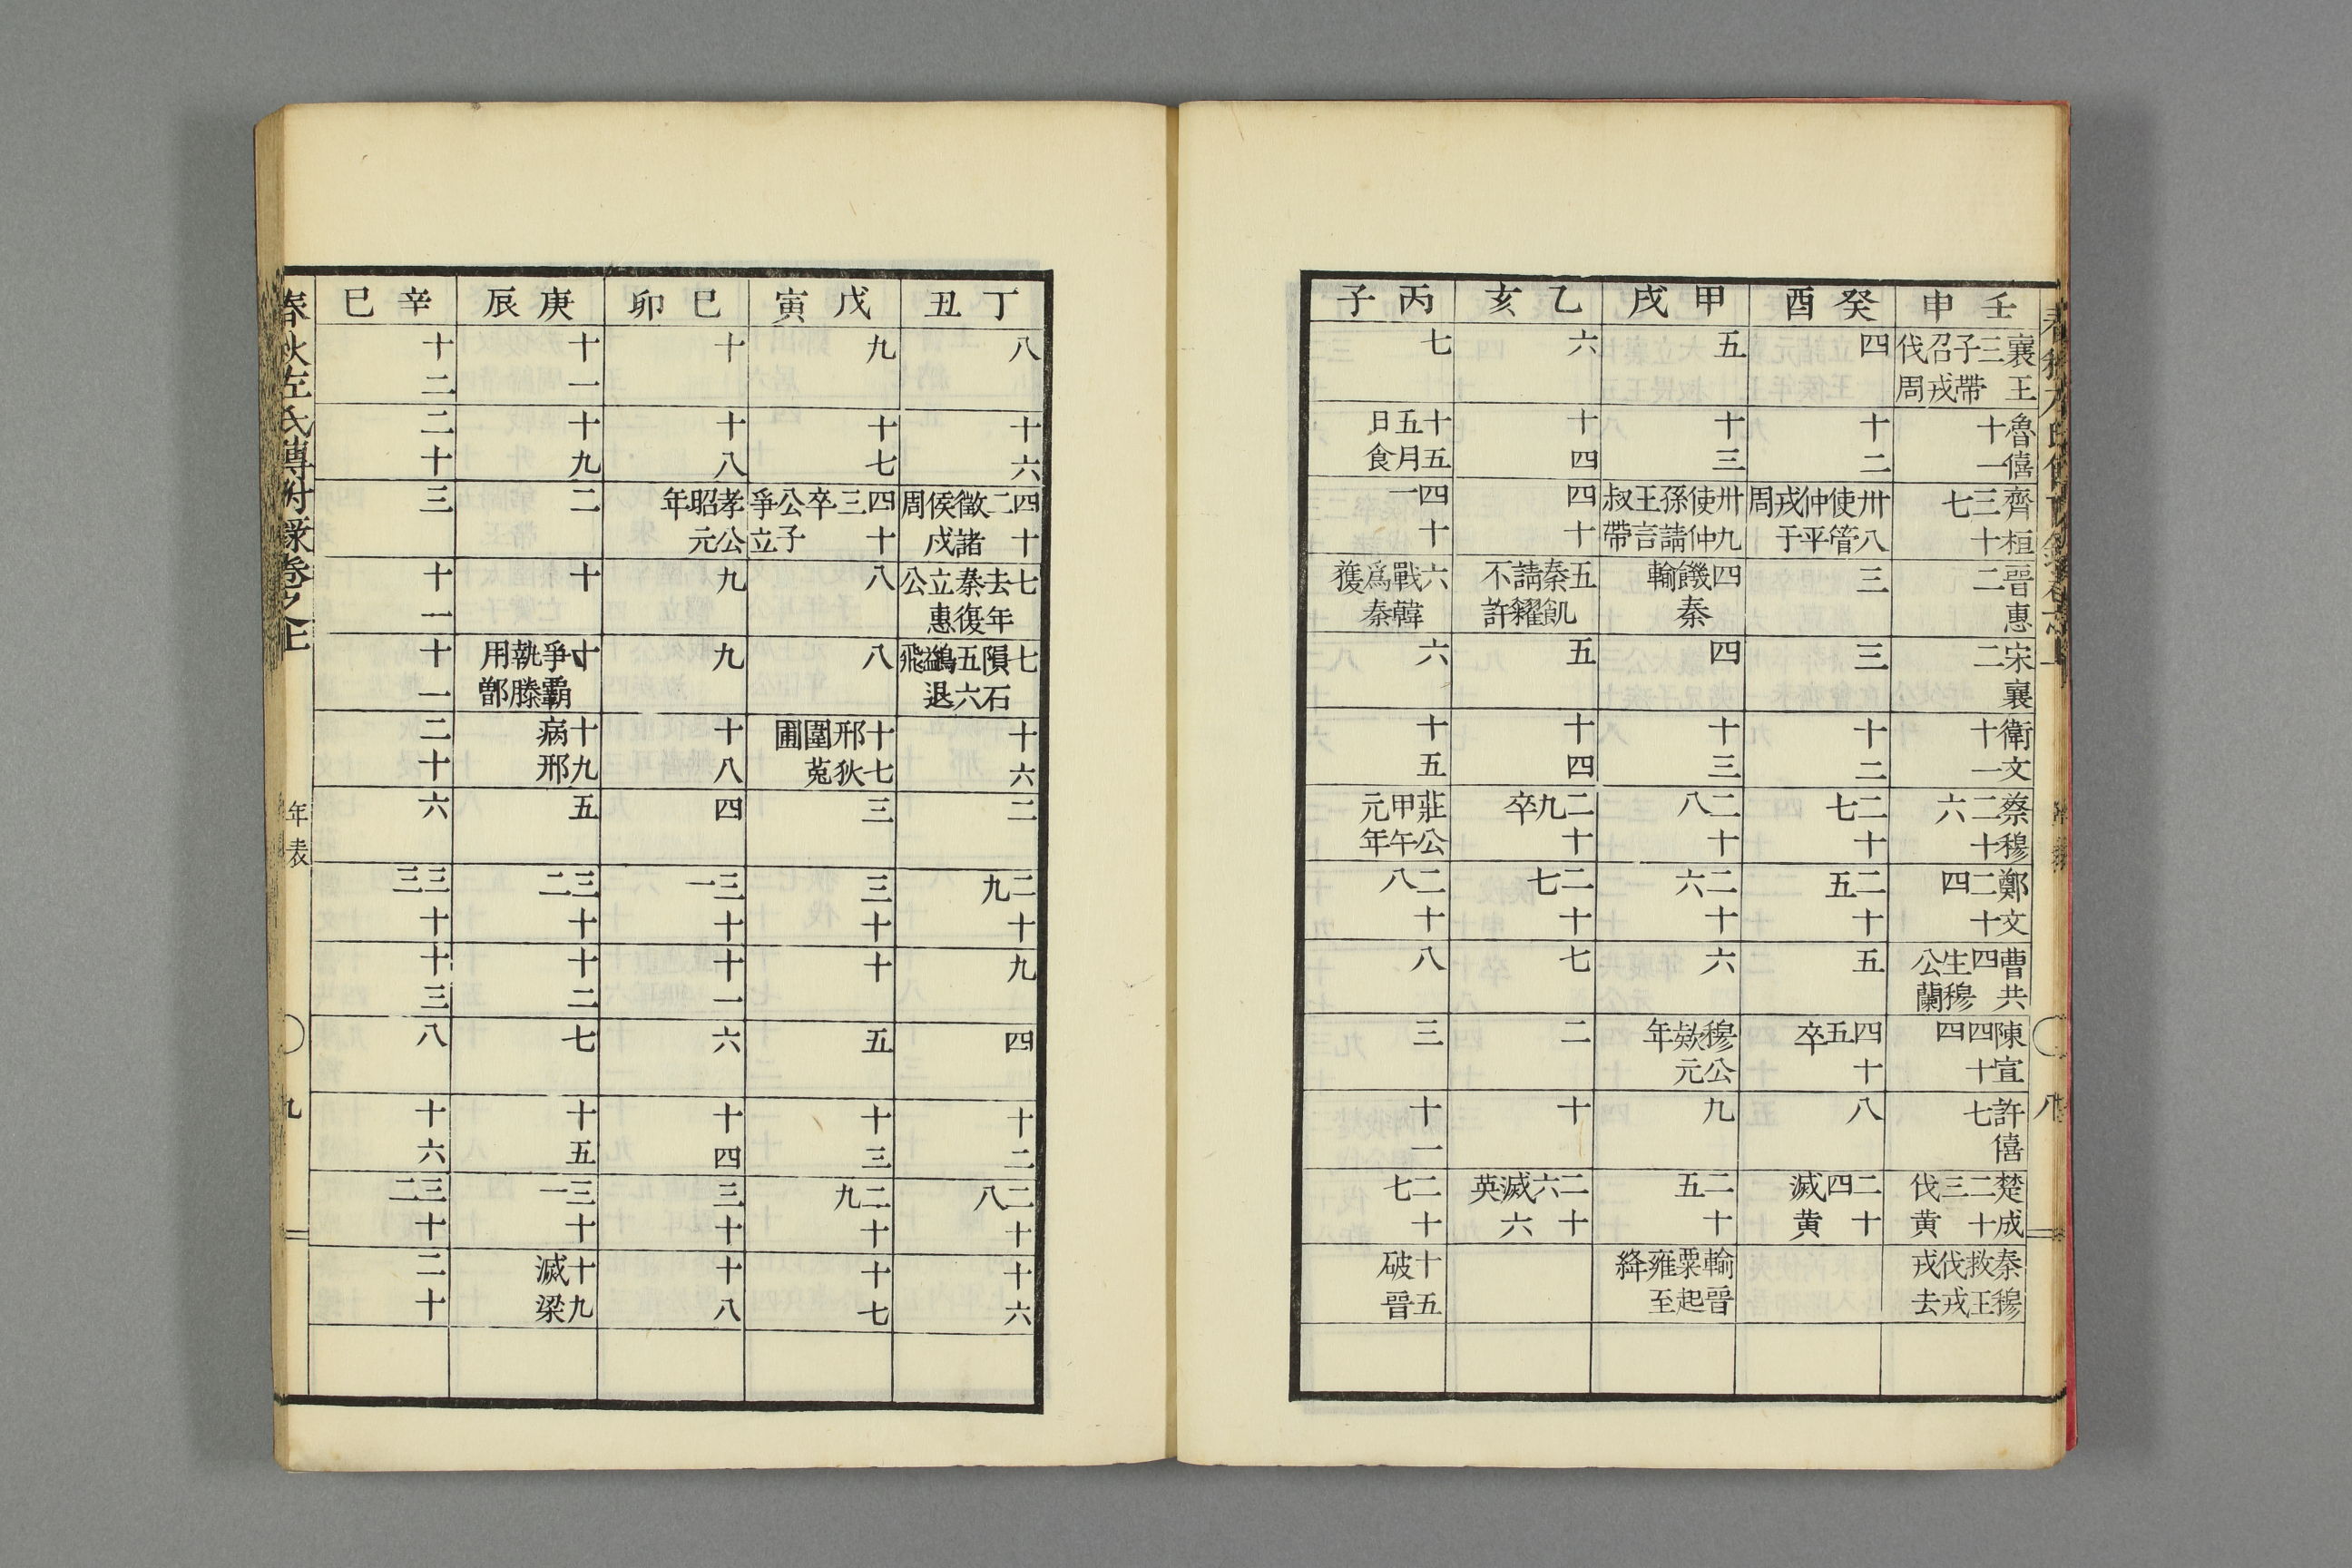 春秋左氏傳附錄卷之上
八
壬申
襄王三子帶召戎伐周
魯僖十一
齊桓三十七
晉惠二
宋襄二
衛文十一
蔡穆二十六
鄭文二十四
曹共四生穆公蘭
陳宣四十四
許僖七
楚成二十三伐黄
秦穆救王伐戎戎去
癸酉
四
十二
卅八使管仲平戎于周
三
三
十二
二十七
二十五
五
四十五卒
八
二十四滅黄
甲戌
五
十三
卅九使仲孫請王言叔帶
四饑秦輸
四
十三
二十八
二十六
六
穆公欵元年
九
二十五
輸晉粟起雍至絳
乙亥
六
十四
四十
五秦飢請糴不許
五
十四
二十九卒
二十七
七
二
十
二十六滅六英
丙子
七
十五五月日食
四十一
六戰韓爲秦獲
六
十五
莊公甲午元年
二十八
八
三
十一
二十七
十五破晉
丁丑
八
十六
四十二徵諸侯戍周
七去年秦復立惠公
七隕石五六鷁退飛
十六
二
二十九
九
四
十二
二十八
十六
戊寅
九
十七
四十三卒公子爭立
八
八
十七邢狄圍菟圃
三
三十
十
五
十三
二十九
十七
巳卯
十
十八
孝公昭元年
九
九
十八
四
三十一
十一
六
十四
三十
十八
庚辰
十一
十九
二
十
十爭霸執滕用鄫
十九病邢
五
三十二
十二
七
十五
三十一
十九滅梁
辛巳
十二
二十
三
十一
十一
二十
六
三十三
十三
八
十六
三十二
二十
春秋左氏傳附錄卷之上
年表
九